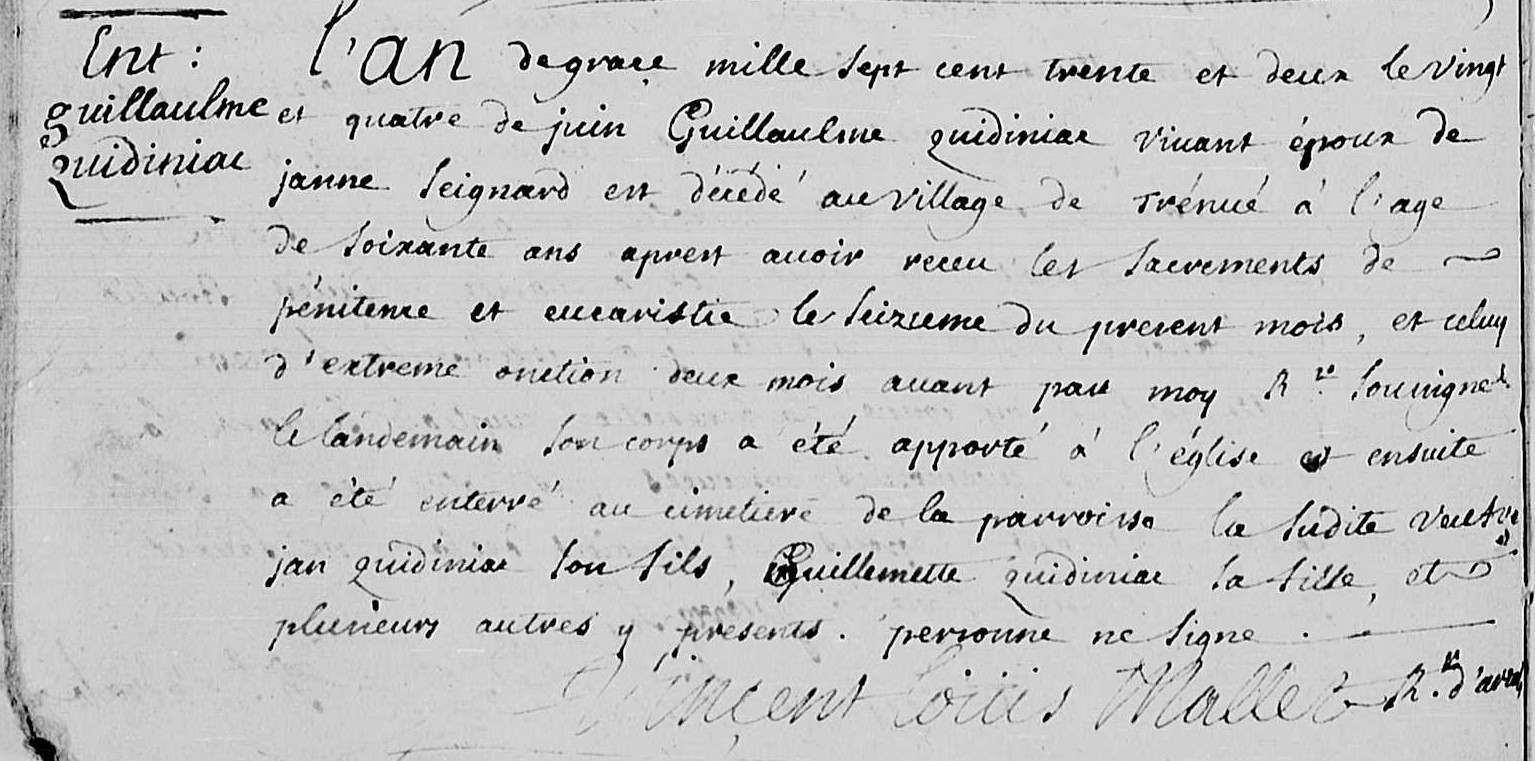 Ent :
guillaulme
quidiniac
l'an de grace mille sept cent trente et deux le vingt
et quatre de juin Guillaulme quidiniac vivant époux de
janne seignard est décédé au village de trénué à l'age
de soixante ans aprest avoir receu les sacrements de
pénitence et eucaristie le seizieme du present mois, et celuy
d'extreme onction deux mois avant par moy Rr. soussigné
le landemain son corps a été apporté à l'église et ensuite
a été enterré au cimetiere de la parroisse la sudite veufve
jan quidiniac son fils, Guillemette quidiniac sa fille, et
plusieurs autres y présents. personne ne signe.
Vincent Louis Mallet Rr. d'